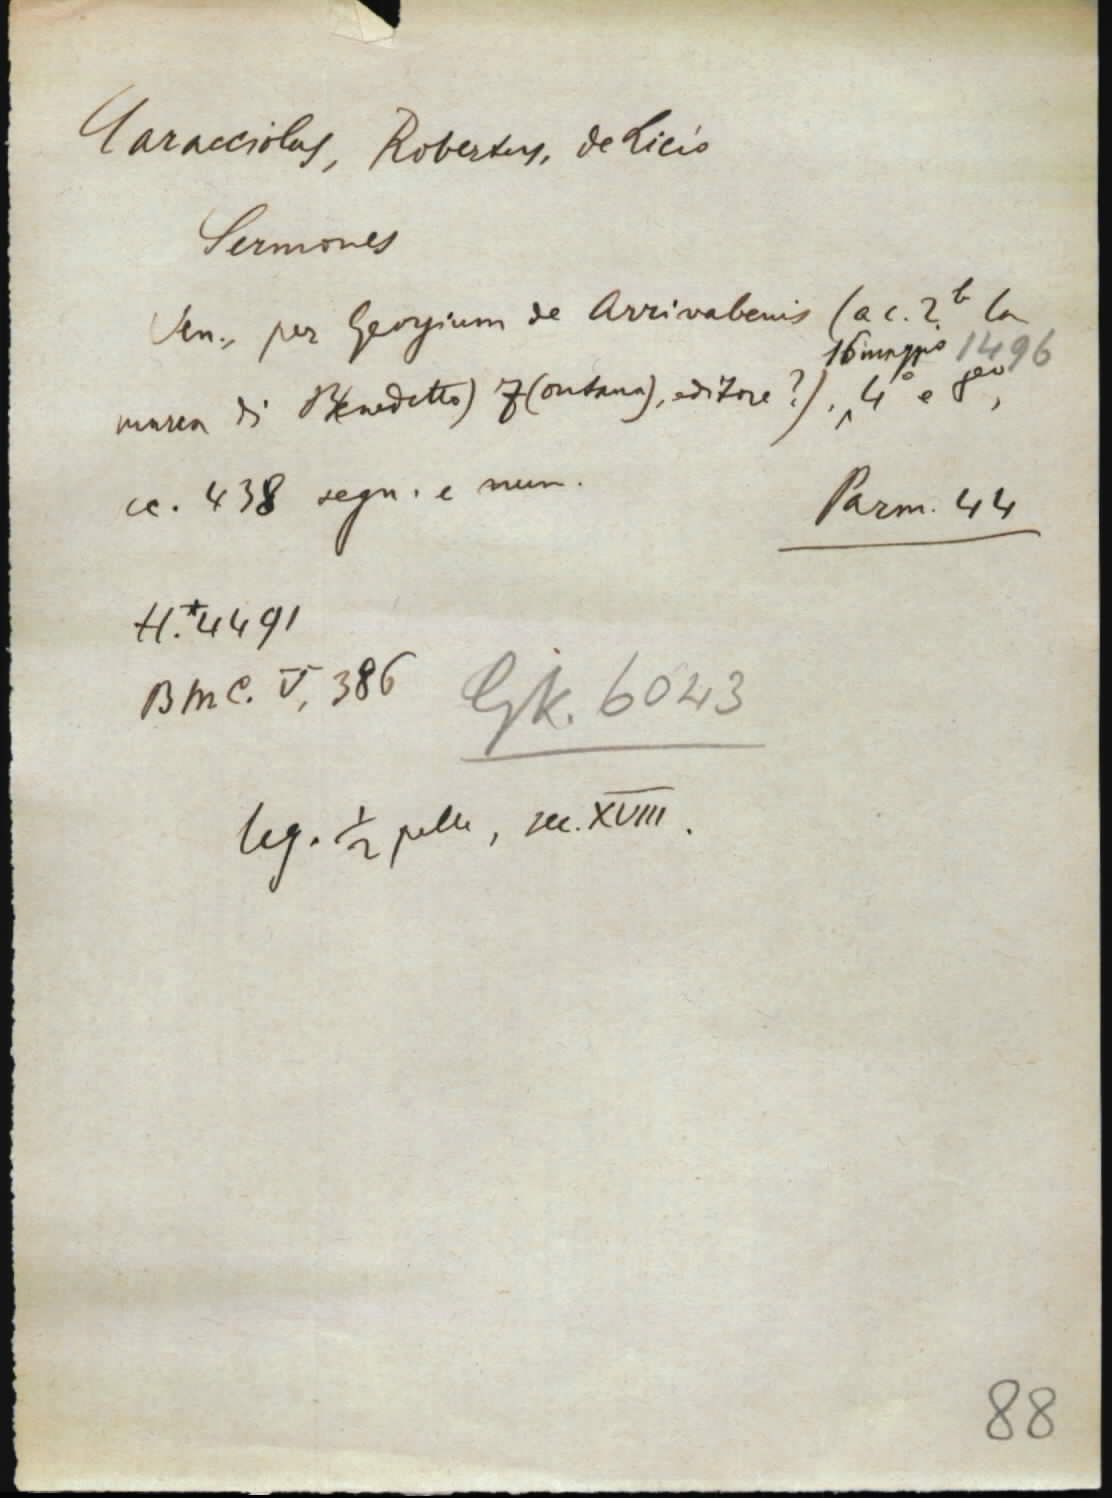 Caracciolus, Robertus, de Licio
Sermones
Ven., per Georgium de Arrivabenis (a c. 2.b la
16 maggio 1496
marca di B(enedetto) F(ontana), editore?), 4° e 8vo,
cc. 438 segn. e num.
Parm. 44
H.*4491
BMC. V, 386
Gk. 6043
leg. 1/2 pelle, sec. XVIII.
88